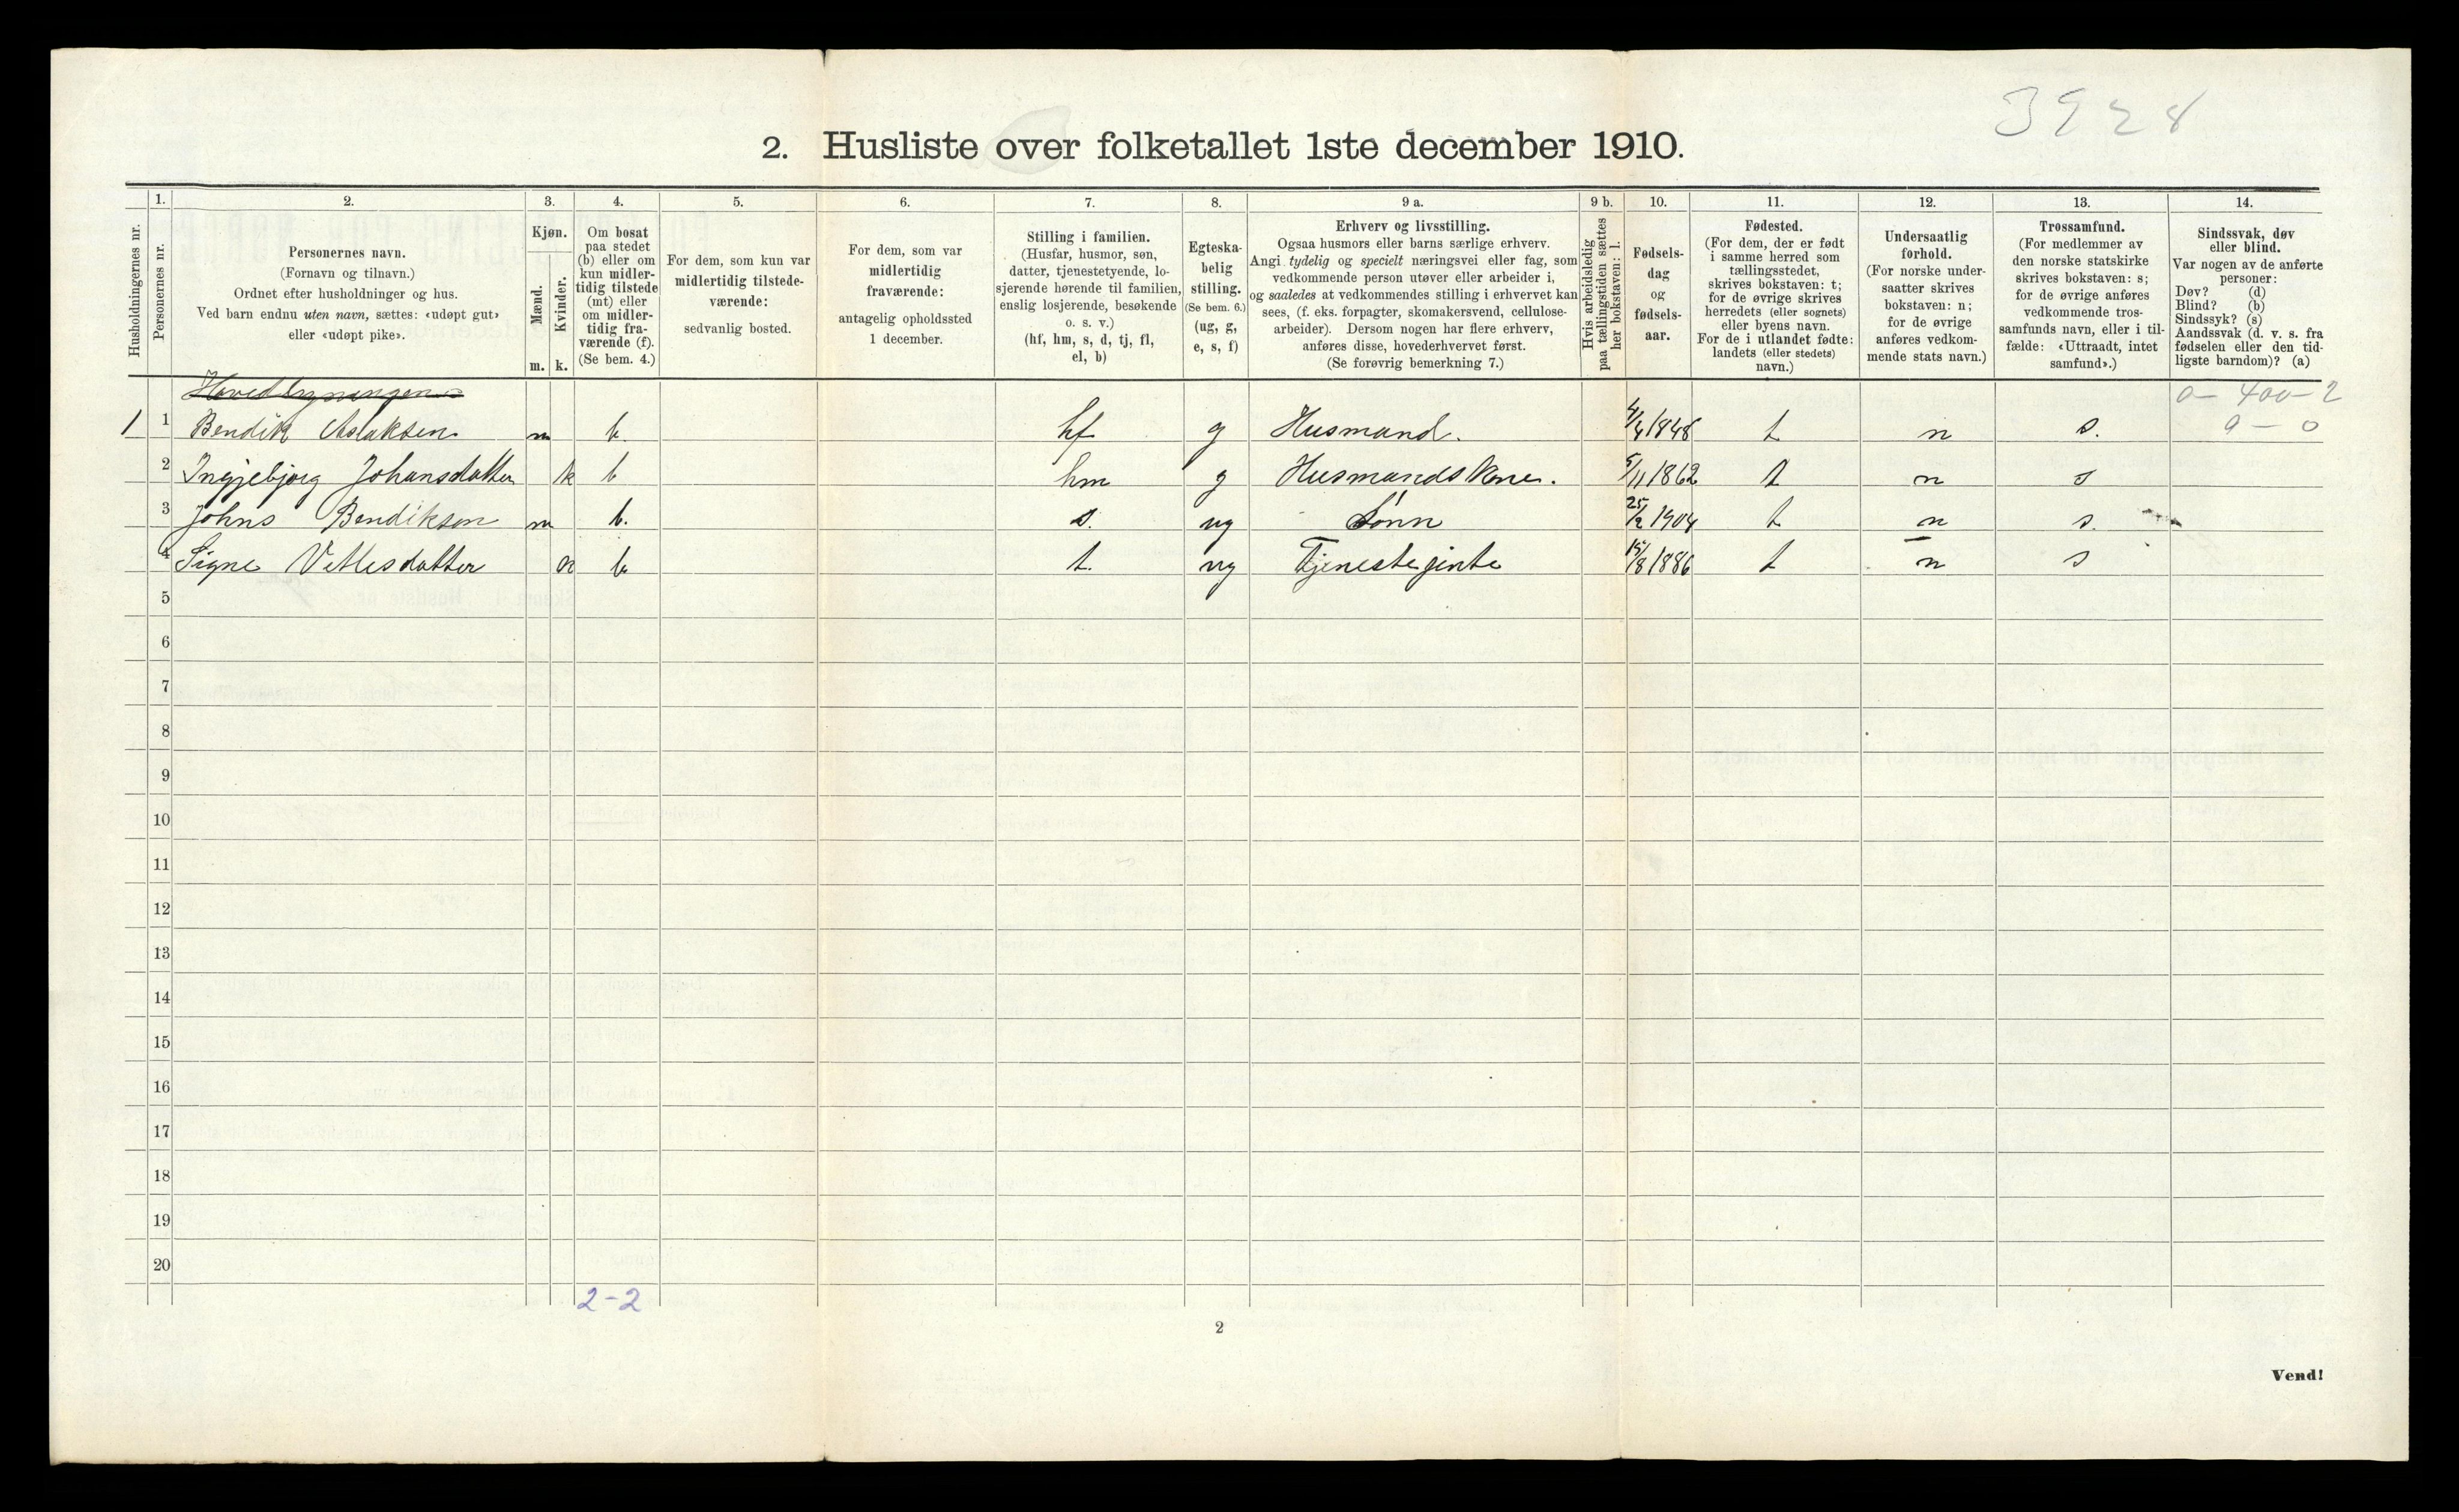 3928
2. Husliste over folketallet 1ste december 1910.
Husholdningernes nr.
1.
Personernes nr.
2.
Personernes navn.
(Fornavn og tilnavn.)
Ordnet efter husholdninger og hus.
Ved barn endnu uten navn, sættes: «udøpt gut»
eller «udøpt pike».
3.
Kjøn.
Mænd.
Kvinder.
m. k.
4.
Om bosat
paa stedet
(b) eller om
kun midler-
tidig tilstede
(mt) eller
om midler-
tidig fra-
værende (f).
(Se bem. 4.)
5.
For dem, som kun var
midlertidig tilstede-
værende:
sedvanlig bosted.
6.
For dem, som var
midlertidig
fraværende:
antagelig opholdssted
1 december.
7.
Stilling i familien.
(Husfar, husmor, søn,
datter, tjenestetyende, lo-
sjerende hørende til familien,
enslig losjerende, besøkende
o. s. v.)
(hf, hm, s, d, tj, fl,
el, b)
8.
Egteska-
belig
stilling.
(Se bem. 6.)
(ug, g,
e, s, f)
9 a.
Erhverv og livsstilling.
Ogsaa husmors eller barns særlige erhverv.
Angi tydelig og specielt næringsvei eller fag, som
vedkommende person utøver eller arbeider i,
og saaledes at vedkommendes stilling i erhvervet kan
sees, (f. eks. forpagter, skomakersvend, cellulose-
arbeider). Dersom nogen har flere erhverv,
anføres disse, hovederhvervet først.
(Se forøvrig bemerkning 7.)
9 b.
Hvis arbeidsledig
paa tællingstiden sættes
her bokstaven: l.
10.
Fødsels-
dag
og
fødsels-
aar.
11.
Fødested.
(For dem, der er født
i samme herred som
tællingsstedet,
skrives bokstaven: t;
for de øvrige skrives
herredets (eller sognets)
eller byens navn.
For de i utlandet fødte:
landets (eller stedets)
navn.)
12.
Undersaatlig
forhold.
(For norske under-
saatter skrives
bokstaven: n;
for de øvrige
anføres vedkom-
mende stats navn.)
13.
Trossamfund.
(For medlemmer av
den norske statskirke
skrives bokstaven: s;
for de øvrige anføres
vedkommende tros-
samfunds navn, eller i til-
fælde: «Uttraadt, intet
samfund».)
14.
Sindssvak, døv
eller blind.
Var nogen av de anførte
personer:
Døv? (d)
Blind? (b)
Sindssyk? (s)
Aandssvak (d. v. s. fra
fødselen eller den tid-
ligste barndom)? (a)
Hovedbygningen
0 - 400 - 2
0 - 0
1 1 Bendik Aslaksen m b. hf g Husmand. 4/4 1848 t n s.
2 Ingjebjørg Johansdatter k b hm g Husmandskone. 5/11 1862 t n s
3 Johns Bendikson m b. s. ug Sønn 25/2 1904 t n s.
4 Signe Vetlesdatter k b t. ug Tjenestejente 15/8 1886 t n s
5
6
7
8
9
10
11
12
13
14
15
16
17
18
19
20
2-2
2
Vend!